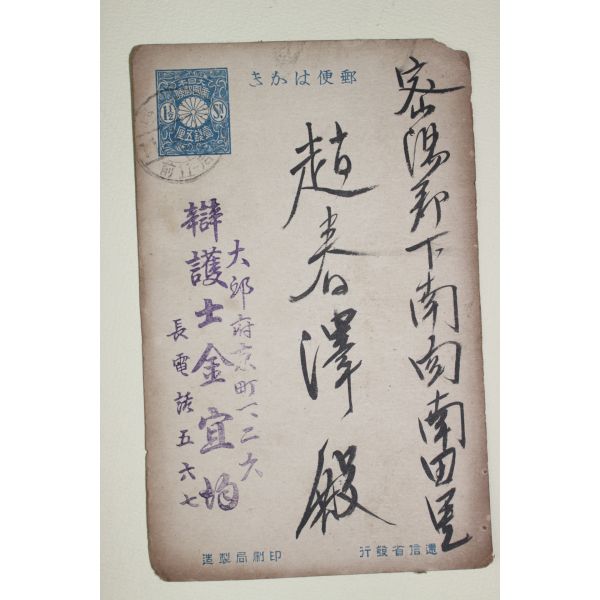 郵便はかき
1½ SN.
壹錢五厘
密陽郡下南面南田里
趙春澤殿
大邱府京町一ノ二六
辯護士金宜均
長電話五六七
遞信省發行
印刷局製造